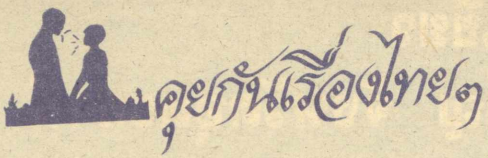 คุยกันเรื่องไทยๆ